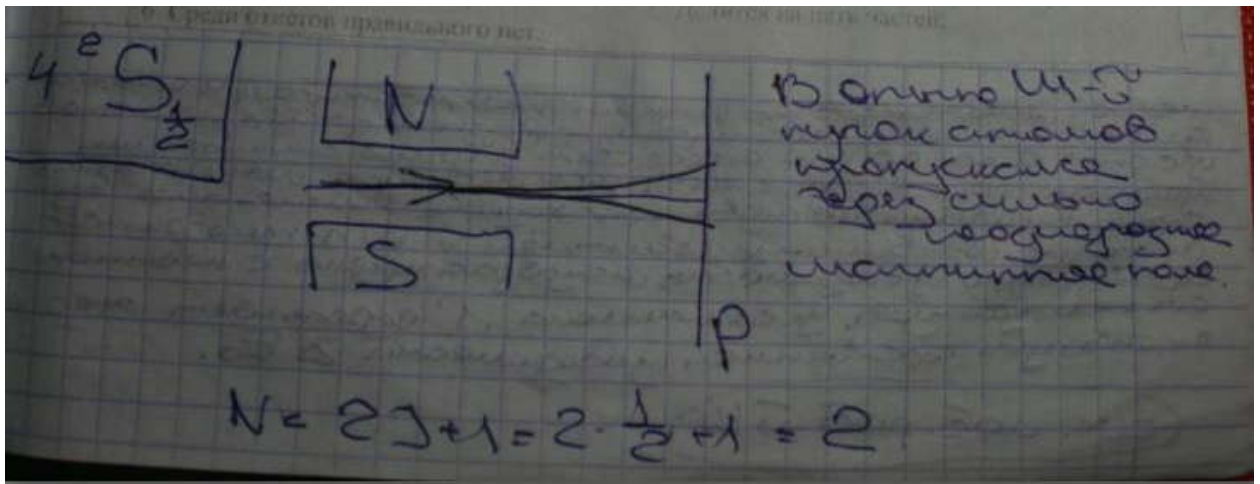 6. Среди ответов правильного нет.
Делится на пять частей.
4 ²S½
N
S
P
В опыте Ш-Г
пучок атомов
пропускался
через сильно
неоднородное
магнитное поле.
N = 2J+1 = 2·½+1 = 2